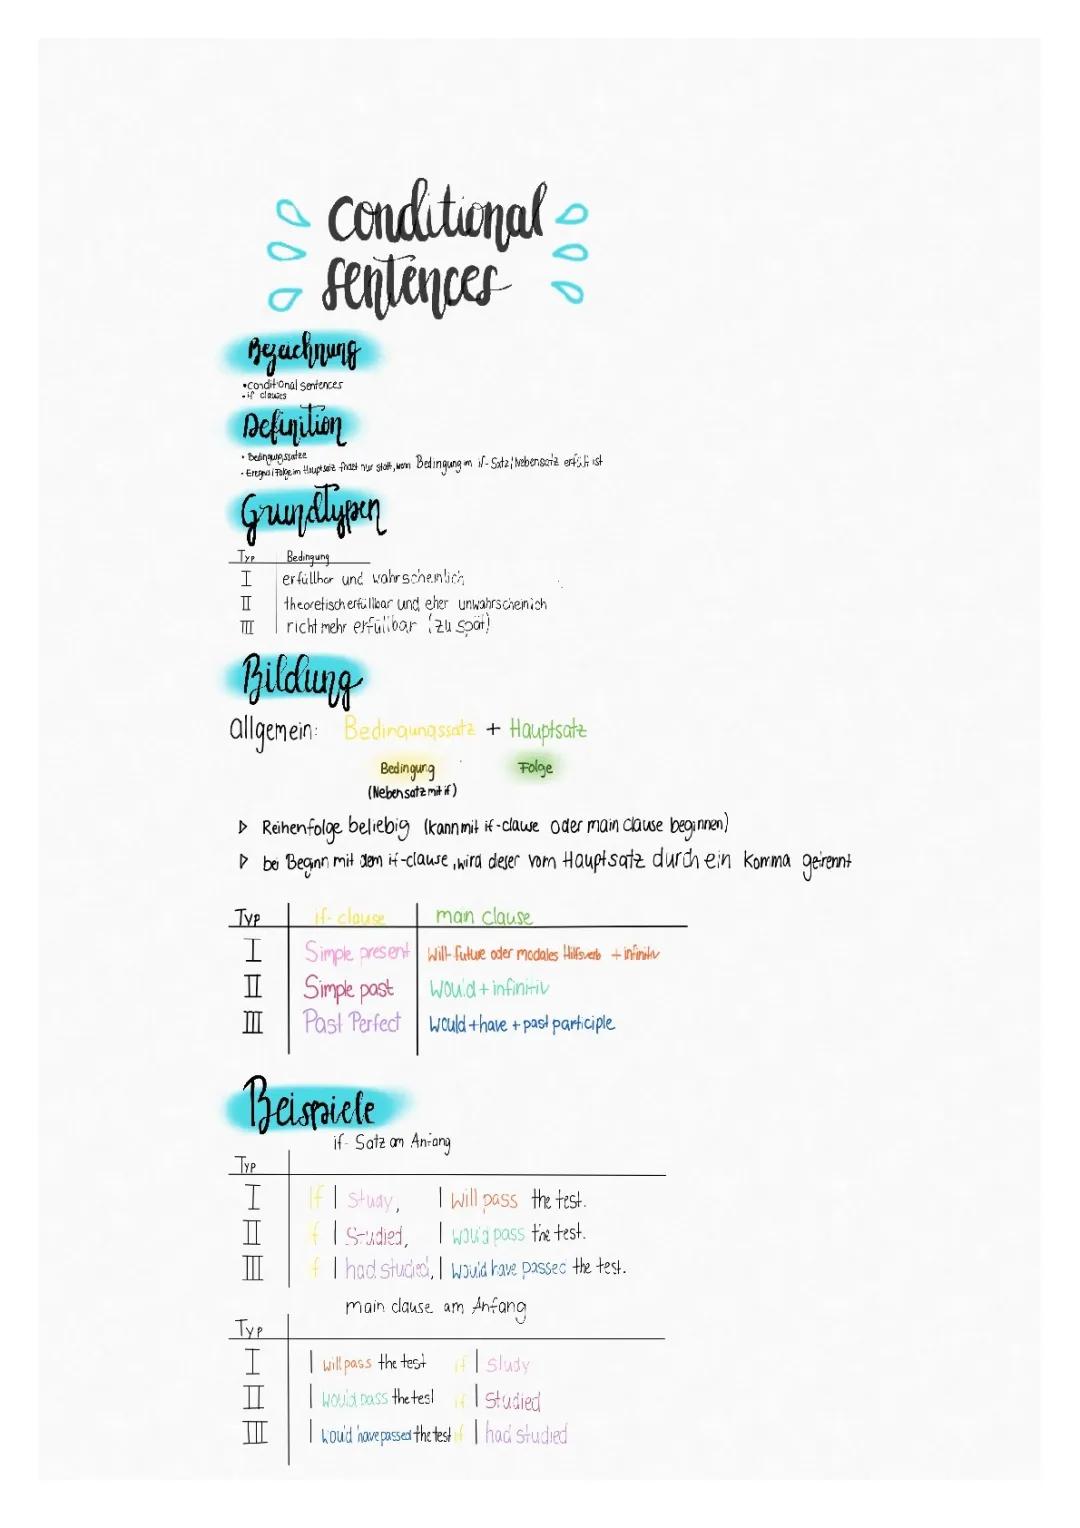 conditional
sentences
Bezeichnung
• conditional sentences
• if clauses
Definition
• Bedingungssätze
• Ereignis/Folge im Hauptsatz findet nur statt, wenn Bedingung im if-Satz/Nebensatz erfüllt ist
Grundtypen
Typ Bedingung
I erfüllbar und wahrscheinlich
II theoretisch erfüllbar und eher unwahrscheinlich
III nicht mehr erfüllbar (zu spät)
Bildung
allgemein: Bedingungssatz + Hauptsatz
Bedingung Folge
(Nebensatz mit if)
▷ Reihenfolge beliebig (kann mit if-clause oder main clause beginnen)
▷ bei Beginn mit dem if-clause, wird dieser vom Hauptsatz durch ein Komma getrennt
Typ if-clause main clause
I Simple present Will-future oder modales Hilfsverb + infinitiv
II Simple past Would + infinitiv
III Past Perfect Would + have + past participle
Beispiele
if-Satz am Anfang
Typ
I If I study, I will pass the test.
II f I Studied, I would pass the test.
III f I had studied, I would have passed the test.
main clause am Anfang
Typ
I I will pass the test if I study
II I would pass the test if I Studied
III I would have passed the test if I had studied